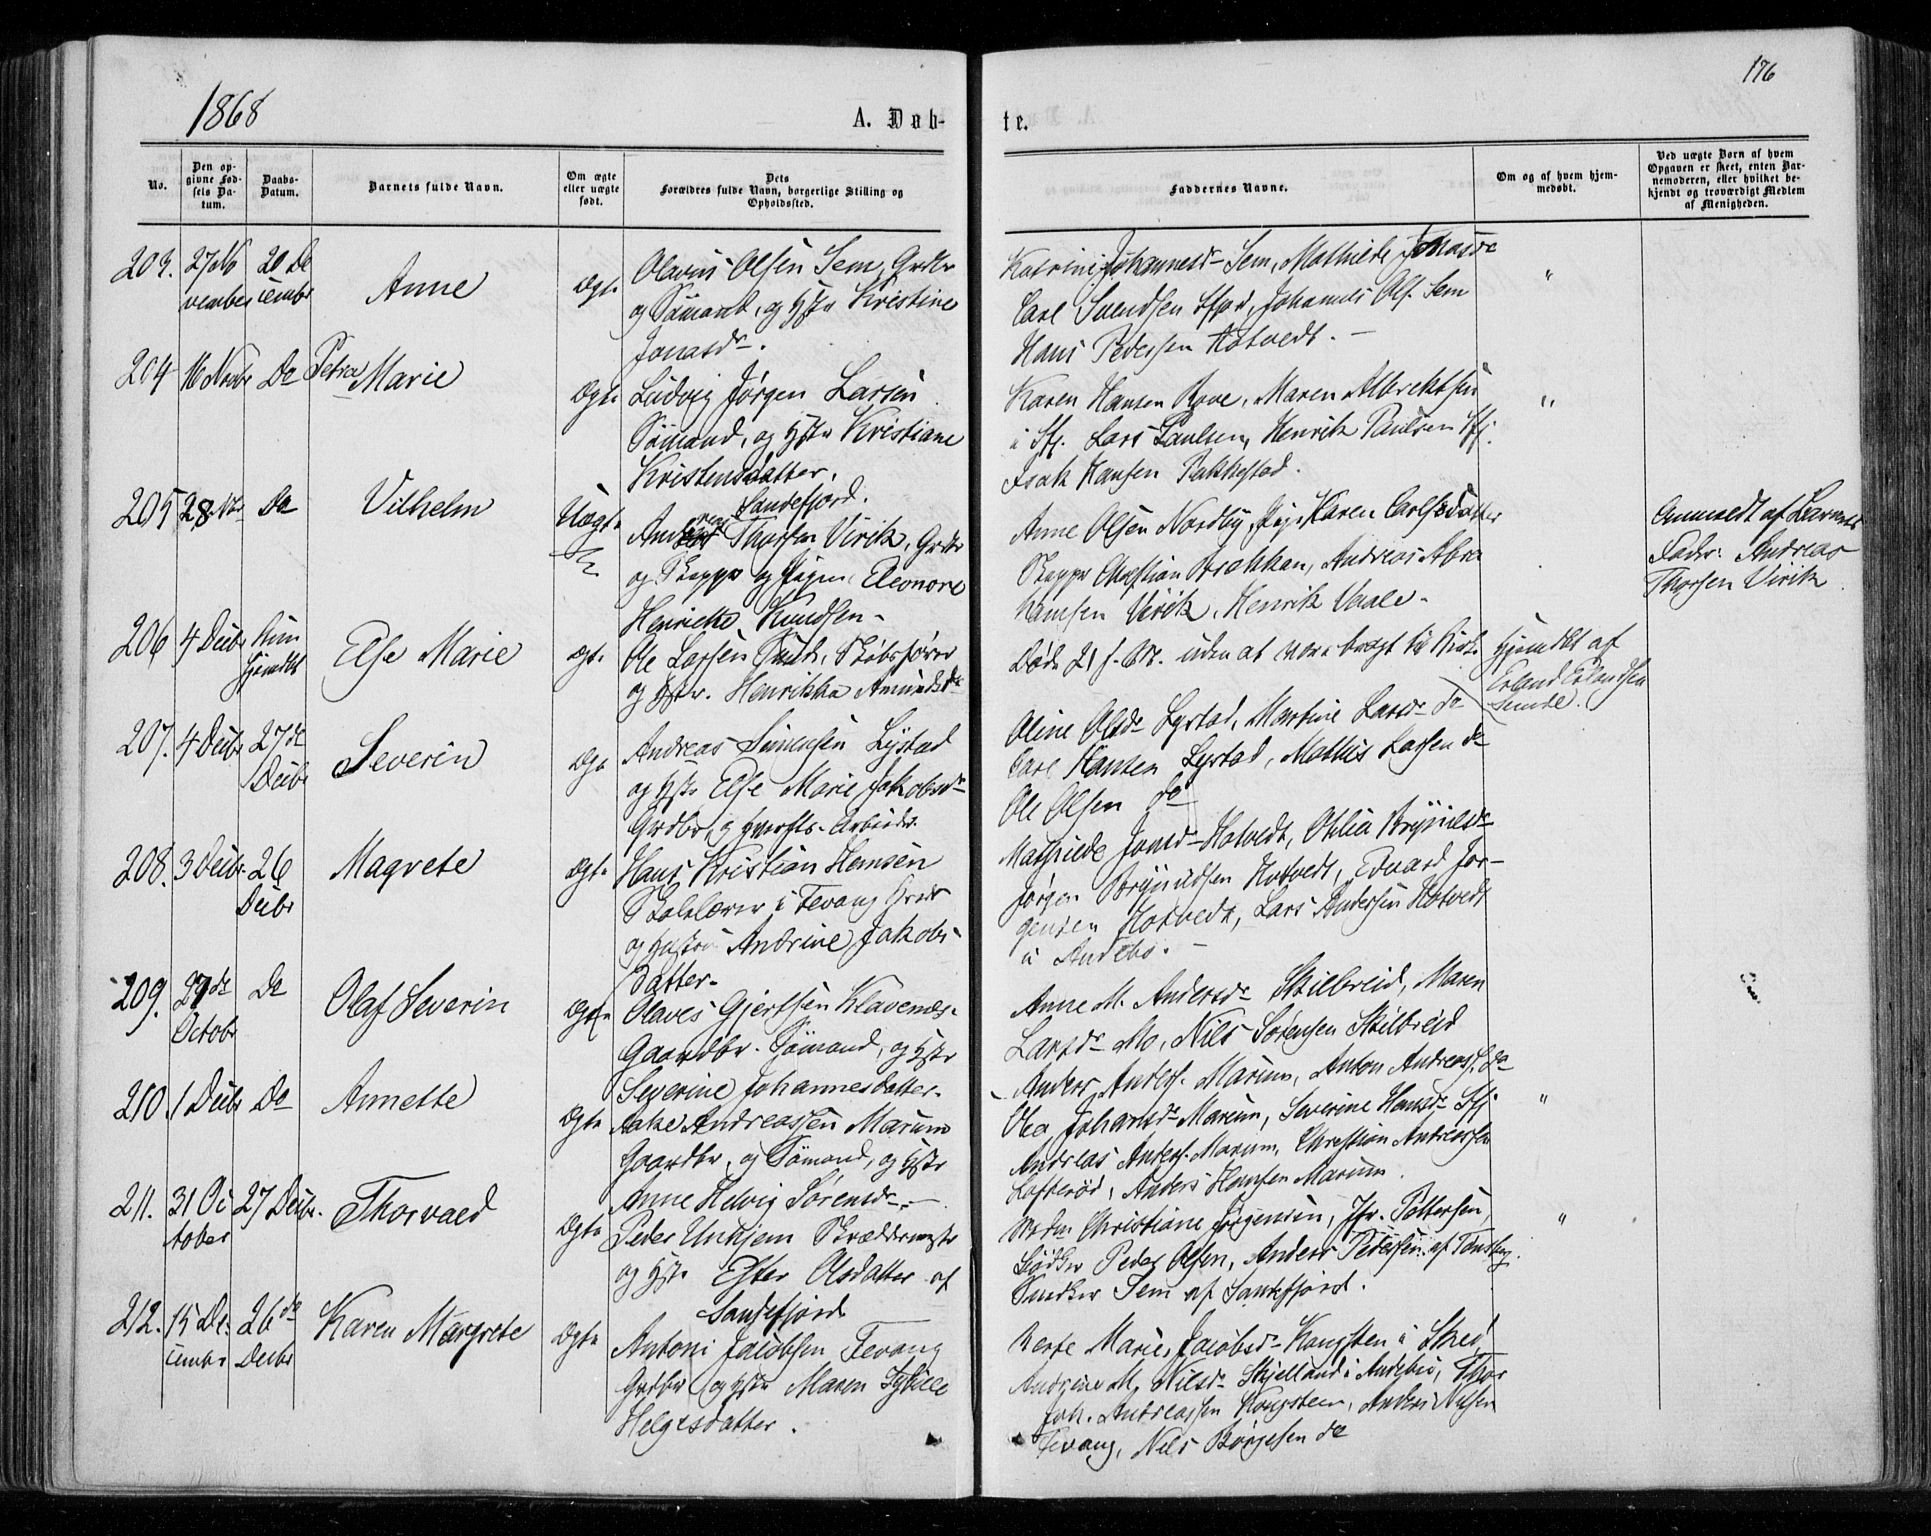 176
1868
A. Døb-
te.
No.
Den op-
givne Fød-
sels Da-
tum.
Daabs-
Datum.
Barnets fulde Navn.
Om ægte
eller uægte
født.
Dets
Forældres fulde Navn, borgerlige Stilling og
Opholdssted.
Faddernes Navne.
Om og af hvem hjem-
medøbt.
Ved uægte Børn af hvem
Opgaven er skeet, enten Bar-
nemoderen, eller hvilket be-
kjendt og troværdigt Medlem
af Menigheden.
203. 27 No
vember
20 De
cembr
Anne
Ægte
Olavus Olsen Sem, Grdbr
og Sømand, og Hstr Kristine
Jonasdr.
Katrine Johannesdr Sem, Mathilde Jonasdr
Carl Svendsen Johannes Ols. Sem
Hans Pedersen Hotvedt. –
"
204 16 Novbr Do Petra Marie
Ægte
Ludvig Jørgen Larsen
Sømand, og Hstr Kristiane
Kristensdatter.
Sandefjord.
Karen Hansen Rove, Maren Albrektsen
i Sfj. Lars Paulsen, Henrik Paulsen Sfj.
Isak Hansen Pukkestad.
"
205 28 Do Vilhelm
Uægte
Andreas Thorsen Virik, Grdbr
og Skippr og Pigen Eleonore
Henrikke Knudsen –
Anne Olsen Nordby, Pige Karen Carlsdatter
Skippr Christian Brækkan, Andreas Abra
hamsen Virik, Henrik Vaale –
Anmeldt af Barnets
Fader: Andreas
Thorsen Virik
206 4 Decbr kun
hjemdøbt
Else Marie
ægte
Ole Larsen Sunde, Skibsfører
og Hstr. Henrikka Amundsdr
Døde 21 f. M. uden at være bragt til Kirke
Hjemdbt af
Erland Erlandsen
Sunde.
207. 4 Decbr 27de
Decbr
Severin
Ægte
Andreas Simensen Lystad
og Hstr Else Marie Jakobsdr
Grdbr. og Hverfts-Arbeider.
Oline Olsdr Lystad, Martine Larsdr do
Carl Hansen Lystad, Mathis Larsen do
Ole Olsen do
208. 3 Decbr. 26
Decbr
Magrete
Ægte
Hans Kristian Hansen
Skolelærer i Fevang Grdbr
og Hustru Andrine Jakobs
datter –
Mathilde Jonsd Hotvedt, Othlia Brynildsdr
Jørgen Brynildsen Hotvedt, Edvard Jør-
gensen Hotvedt, Lars Andersen Hotvedt
i Andebo. –
209. 27de
Octobr
Do
Olaf Severin
Ægte
Olaves Gjertsen Klavenæs.
Gaardbr. Sømand, og Hstr
Severine Johannesdatter.
Anne M. Andersdr Skilbreid, Maren
Larsdr Mo, Nils Sørensen Skilbreid
Anders Anders. Marum, Anton Andreass. do
210. 1 Decbr Do Annette
Ægte
Aake Andreassen Marum
Gaardbr. og Sømand, og Hstr
Anne Helvig Sørensdr. –
Olea Johansdr Marum, Severine Hansdr Sfj.
Andreas Anders. Marum, Christian Andreassen
Lofterød, Anders Hansen Marum.
"
211. 31 Oc
tober
27 Decbr.
Thorvald
Ægte
Peder Unhjem Skræddermester
og Hstr Ester Olsdatter af
Sandefjord
Mdm Christiane Jørgensen, Jfr. Pettersen,
Bødker Peder Olsen, Anders Pedersen af Tønsberg.
Snedker Sem af Sandefjord.
"
212. 15 De-
cembr
26de
Decbr
Karen Margrete
Ægte
Antoni Jacobsen Fevang
Grdbr og Hstr Maren Sybille
Helgesdatter.
Berte Marie Jacobsdr Kongsten i Sked
Andrine M. Nilsdr Skjelland i Andebo, Thor
Joh. Andreassen Kongsteen, Anders Nilsen
Fevang, Nils Børgesen do